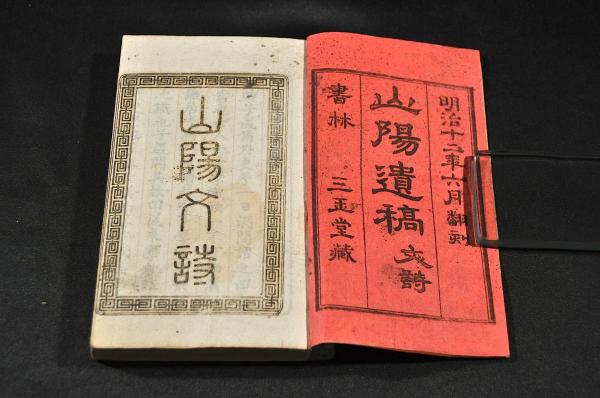 明治十二年六月翻刻
山陽遺稿 文詩
書林 三玉堂藏
山陽文詩